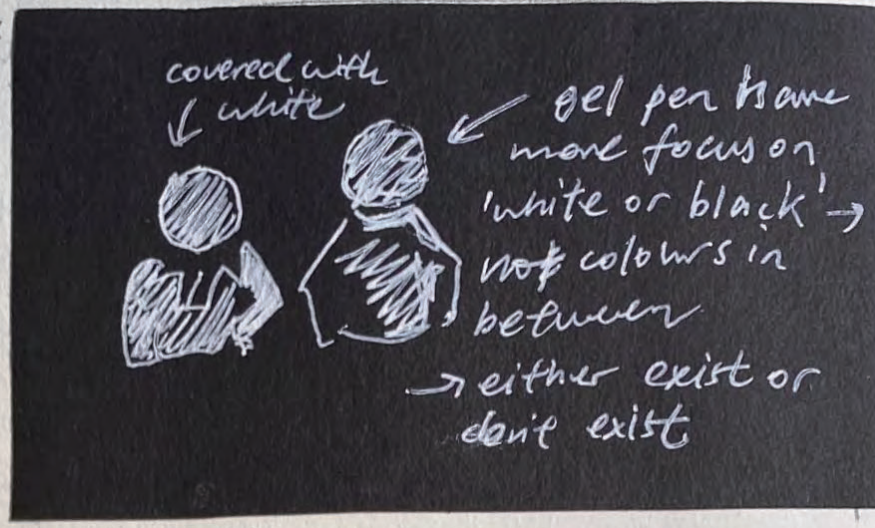 covered with
white
gel pen have
more focus on
'white or black' →
not colours in
between
→ either exist or
don't exist